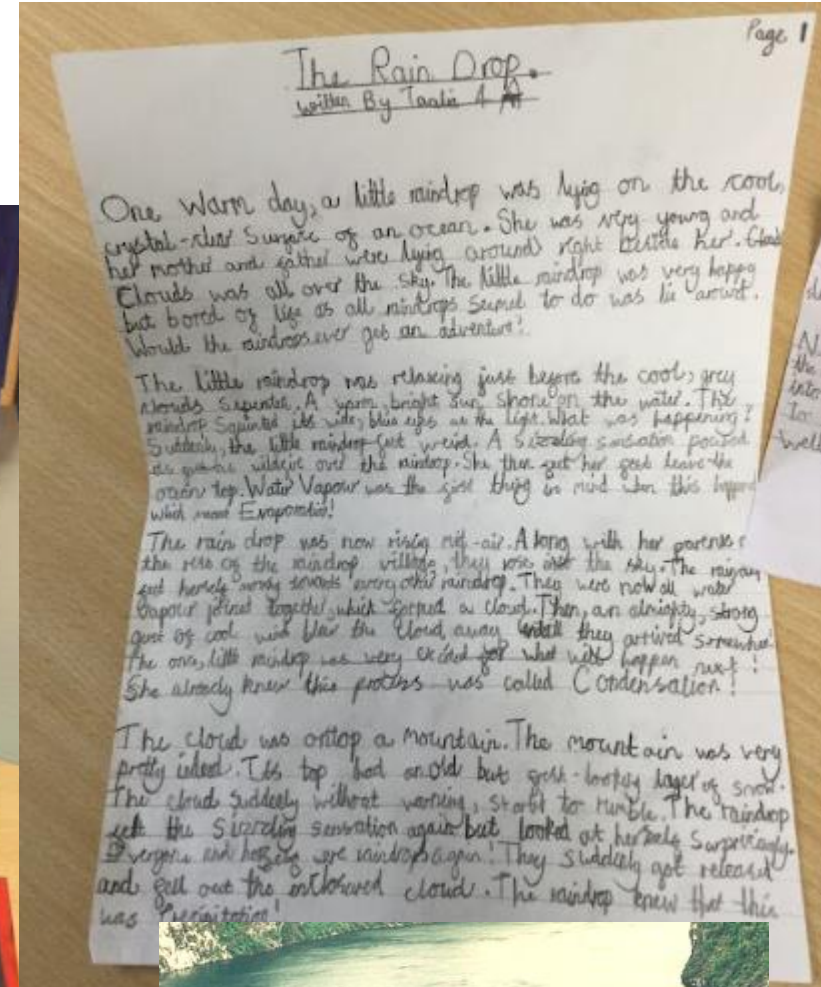 Page 1
The Rain Drop.
written By Taalia 4
One warm day, a little raindrop was lying on the cool,
crystal-clear surface of an ocean. She was very young and
her mother and father were lying around right beside her.
Clouds was all over the sky. The little raindrop was very happy
but bored of life as all raindrops seemed to do was lie
Would the raindrops ever get an adventure!
The little raindrop was relaxing just before the cool, grey
clouds A warm, bright sun shone on the water. The
raindrop squinted its wide, blue eyes at the light. What was happening?
Suddenly, the little raindrop felt weird. A sizzling sensation
over the raindrop. She then felt her feet leave the
ocean top. Water Vapour was the first thing in mind when this
which meant Evaporation!
The rain drop was now rising mid-air. Along with her parents
the rest of the raindrop village, they rose into the sky. The
felt herself towards every other raindrop. They were now all water
Vapour joined together, which formed a cloud. Then, an almighty, strong
gust of cool wind blew the cloud away they arrived
The once, little raindrop was very excited for what will happen next!
She already knew this process was called Condensation!
The cloud was ontop a mountain. The mountain was very
pretty indeed. Its top had an old but fresh-looking layer of snow.
The cloud suddenly without warning, to rumble. The raindrop
felt the sizzling sensation again but looked at herself surprisingly.
Everyone and herself were raindrops again! They suddenly got released
and fell out the cloud. The raindrop knew that this
was Precipitation!
the
into
To
well